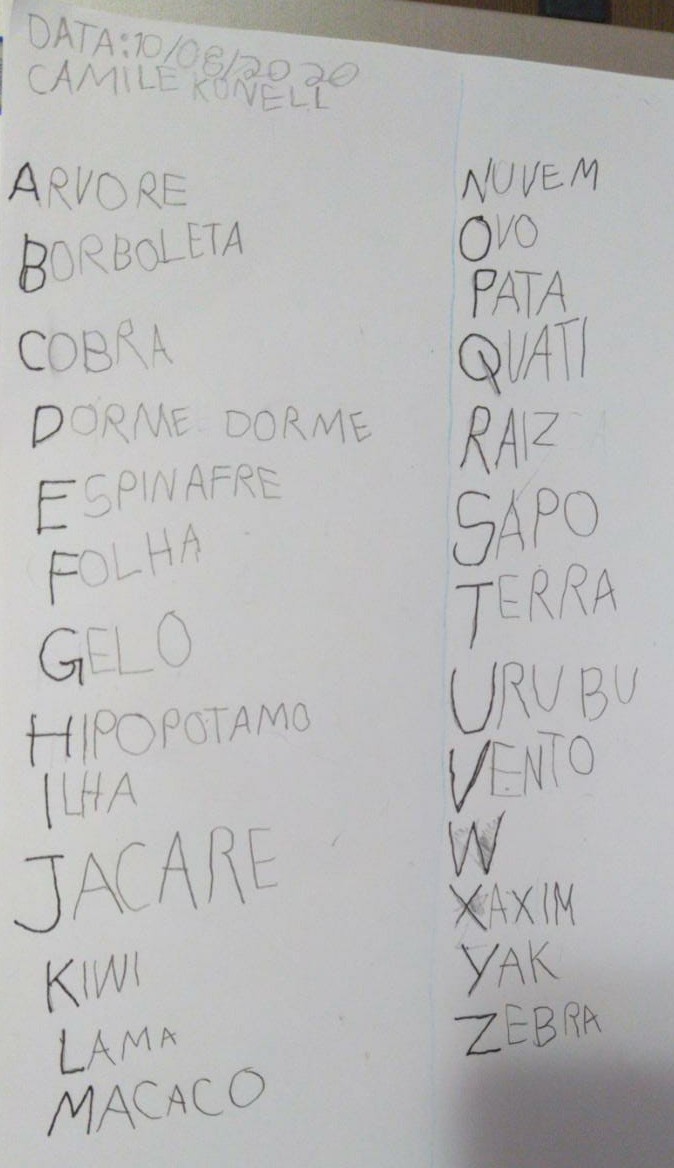 DATA:10/08/2020
CAMILE KONELL
ARVORE
BORBOLETA
COBRA
DORME DORME
ESPINAFRE
FOLHA
GELO
HIPOPOTAMO
ILHA
JACARE
KIWI
LAMA
MACACO
NUVEM
OVO
PATA
QUATI
RAIZ
SAPO
TERRA
URUBU
VENTO
W
XAXIM
YAK
ZEBRA